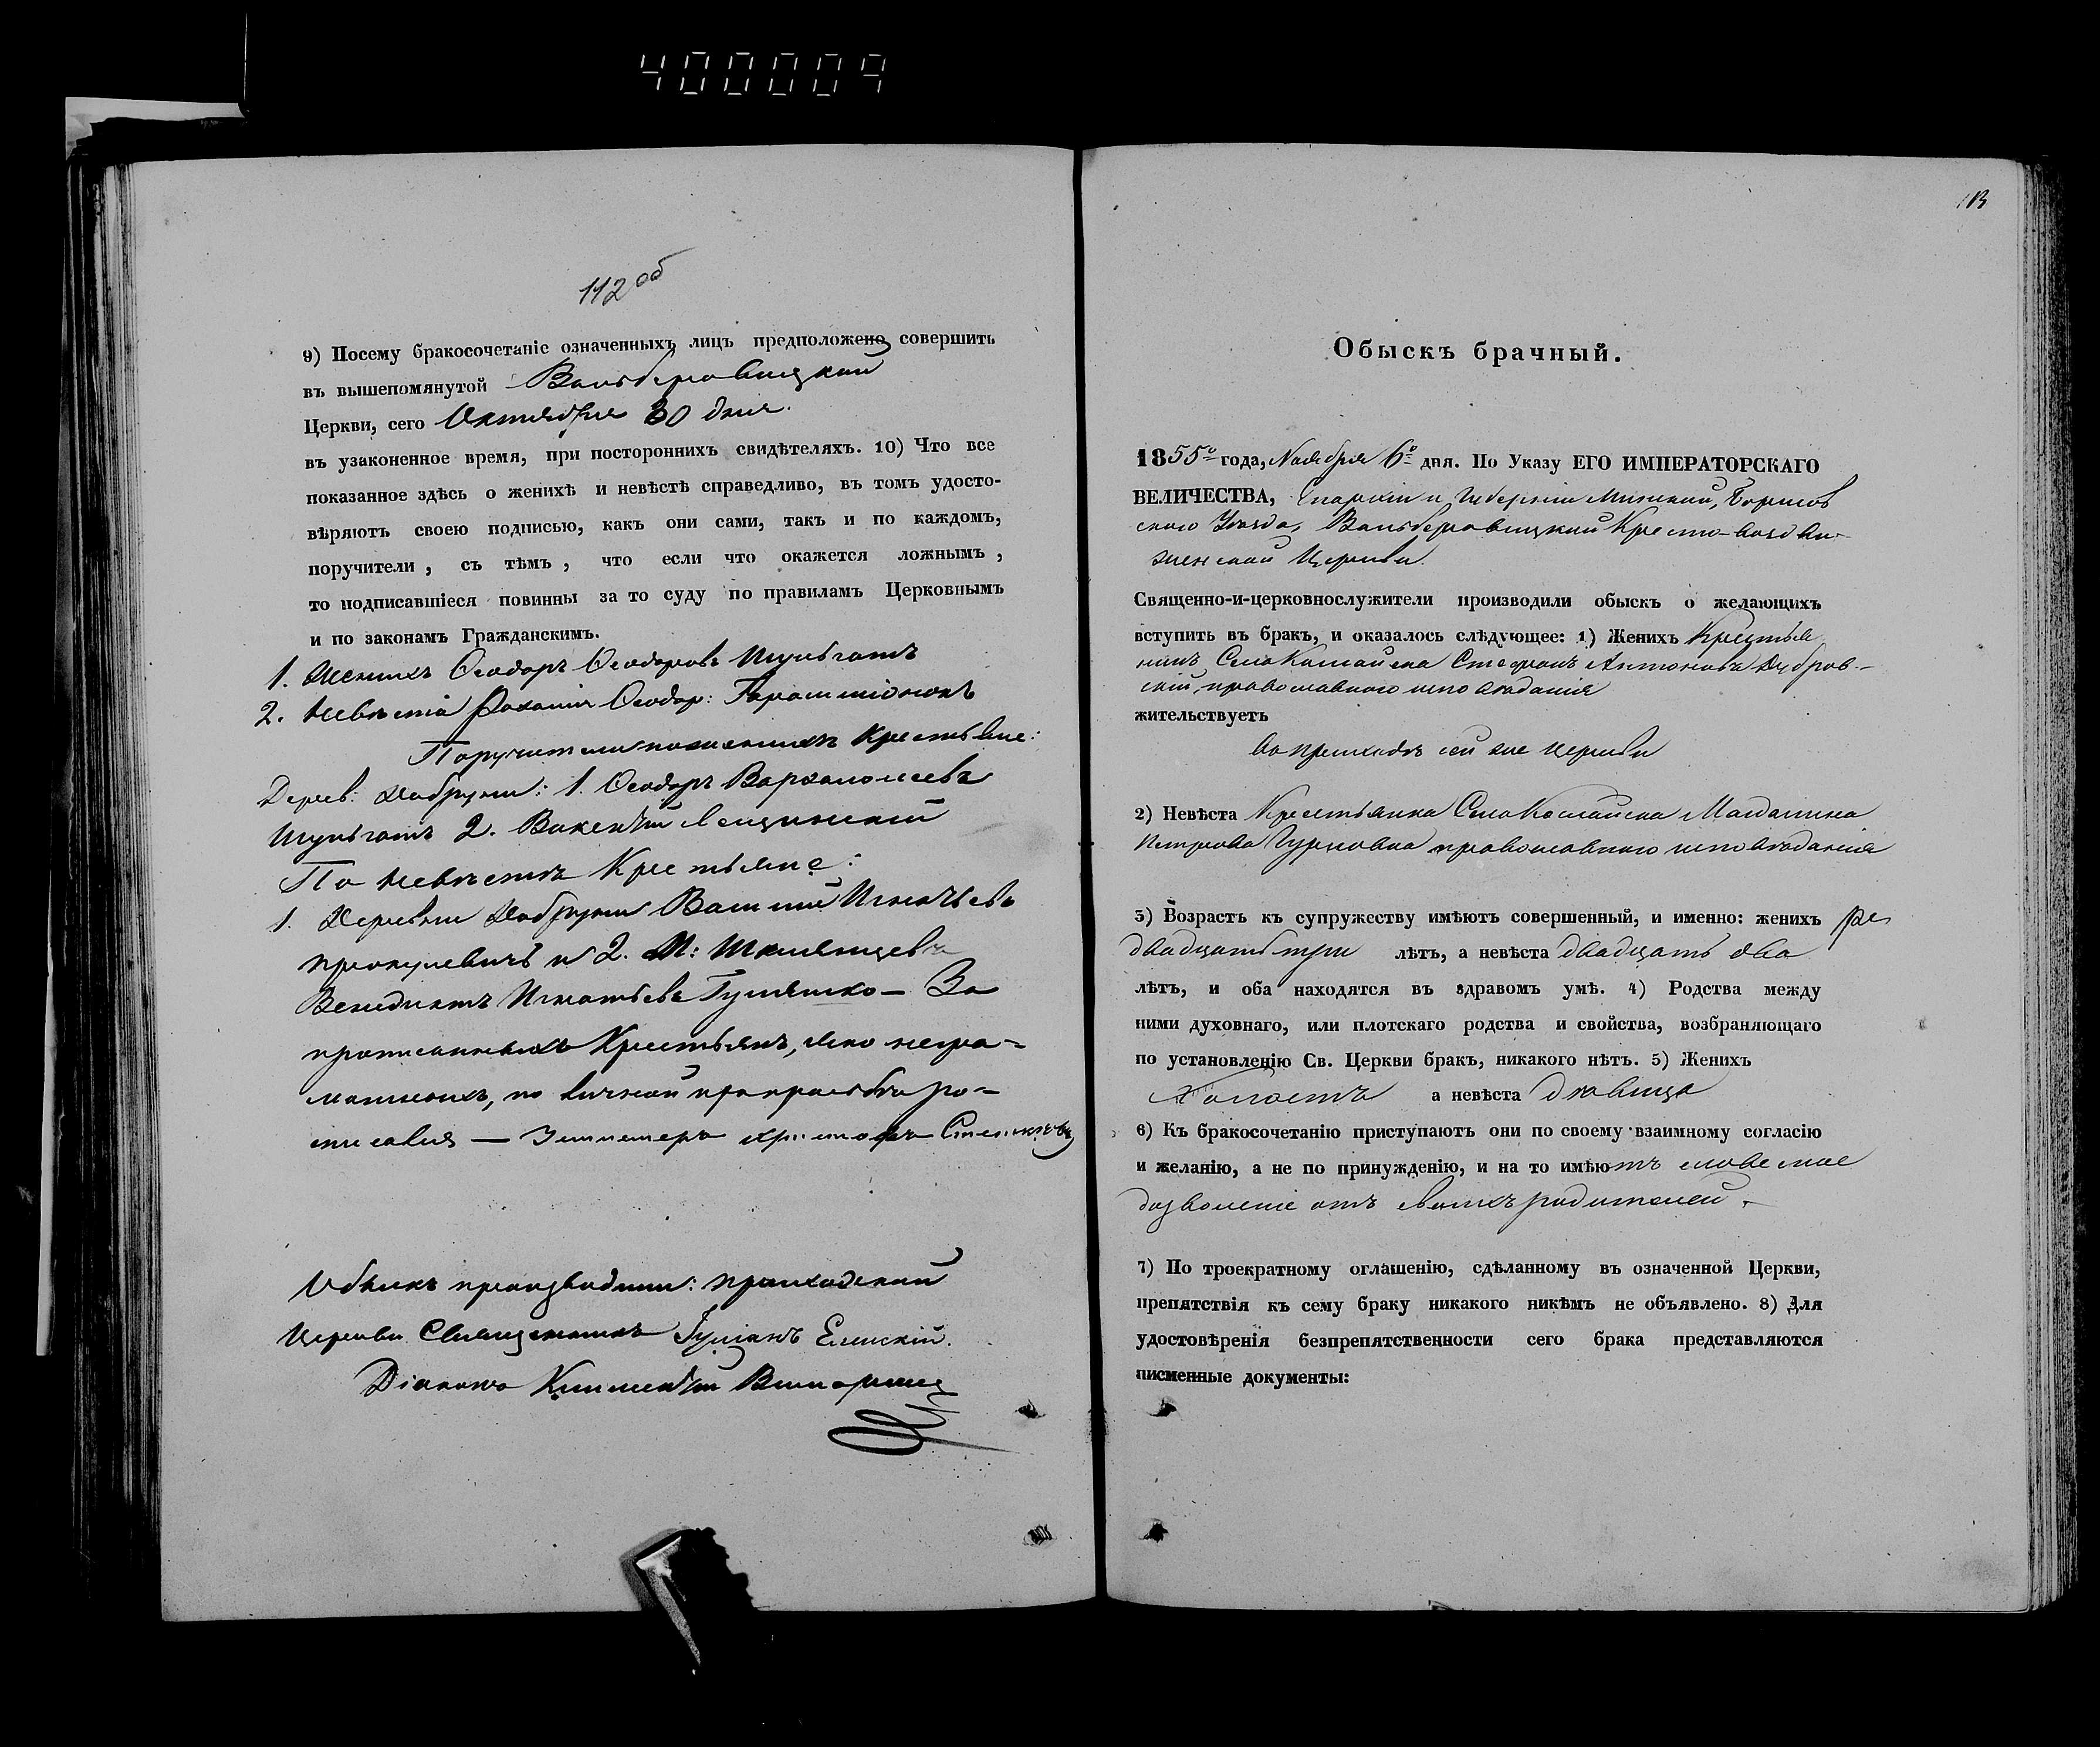 400009
112 об
9) Посему бракосочетаніе означенныхъ лицъ предположено совершить
въ вышепомянутой Вольберовицкой
Церкви, сего Октября 30 дня.
въ узаконенное время, при постороннихъ свидѣтеляхъ. 10) Что все
показанное здѣсь о женихѣ и невѣстѣ справедливо, въ томъ удосто-
вѣряютъ своею подписью, какъ они сами, такъ и по каждомъ,
поручители, съ тѣмъ, что если что окажется ложнымъ,
то подписавшіеся повинны за то суду по правиламъ Церковнымъ
и по законамъ Гражданскимъ.
1. Женихъ Ѳеодоръ Ѳеодоровъ Шульгатъ
2. Невѣста Ѳеодор:
Поручители по женихѣ Крестьяне:
Дерев: 1. Ѳеодоръ Варѳоломеевъ
Шульгатъ 2. Викентій
По невѣстѣ Крестьяне:
1. Деревни Василій Игнатьевъ
и 2. М:
Венедиктъ Игнатьевъ За
прописанныхъ Крестьянъ, яко негра-
мотныхъ, по личной просьбѣ ро-
списался —
Обыскъ производили: приходской
Церкви Священникъ Іуліанъ Ельскій.
Діаконъ Климентій
113
Обыскъ брачный.
1855го года, Ноября 6го дня. По Указу ЕГО ИМПЕРАТОРСКАГО
ВЕЛИЧЕСТВА, Епархіи и Губерніи Минской, Борисов
скаго Уѣзда, Вольберовицкой Кресто-воздви-
женской Церкви
Священно-и-церковнослужители производили обыскъ о желающихъ
вступить въ бракъ, и оказалось слѣдующее: 1) Женихъ Крестья
нинъ Села Стефанъ Антоновъ Дубров-
скій, православнаго исповѣданія
жительствуетъ
въ приходѣ сей же церкви
2) Невѣста Крестьянка Села Магдалина
Петрова Гурновна православнаго исповѣданія
3) Возрастъ къ супружеству имѣютъ совершенный, и именно: женихъ
двадцать три лѣтъ, а невѣста двадцать два
лѣтъ, и оба находятся въ здравомъ умѣ. 4) Родства между
ними духовнаго, или плотскаго родства и свойства, возбраняющаго
по установленію Св. Церкви бракъ, никакого нѣтъ. 5) Женихъ
холостъ а невѣста дѣвица
6) Къ бракосочетанію приступаютъ они по своему взаимному согласію
и желанію, а не по принужденію, и на то имѣютъ словесное
дозволеніе отъ своихъ родителей.
7) По троекратному оглашенію, сдѣланному въ означенной Церкви,
препятствія къ сему браку никакого никѣмъ не объявлено. 8) Для
удостовѣренія безпрепятственности сего брака представляются
писменные документы: